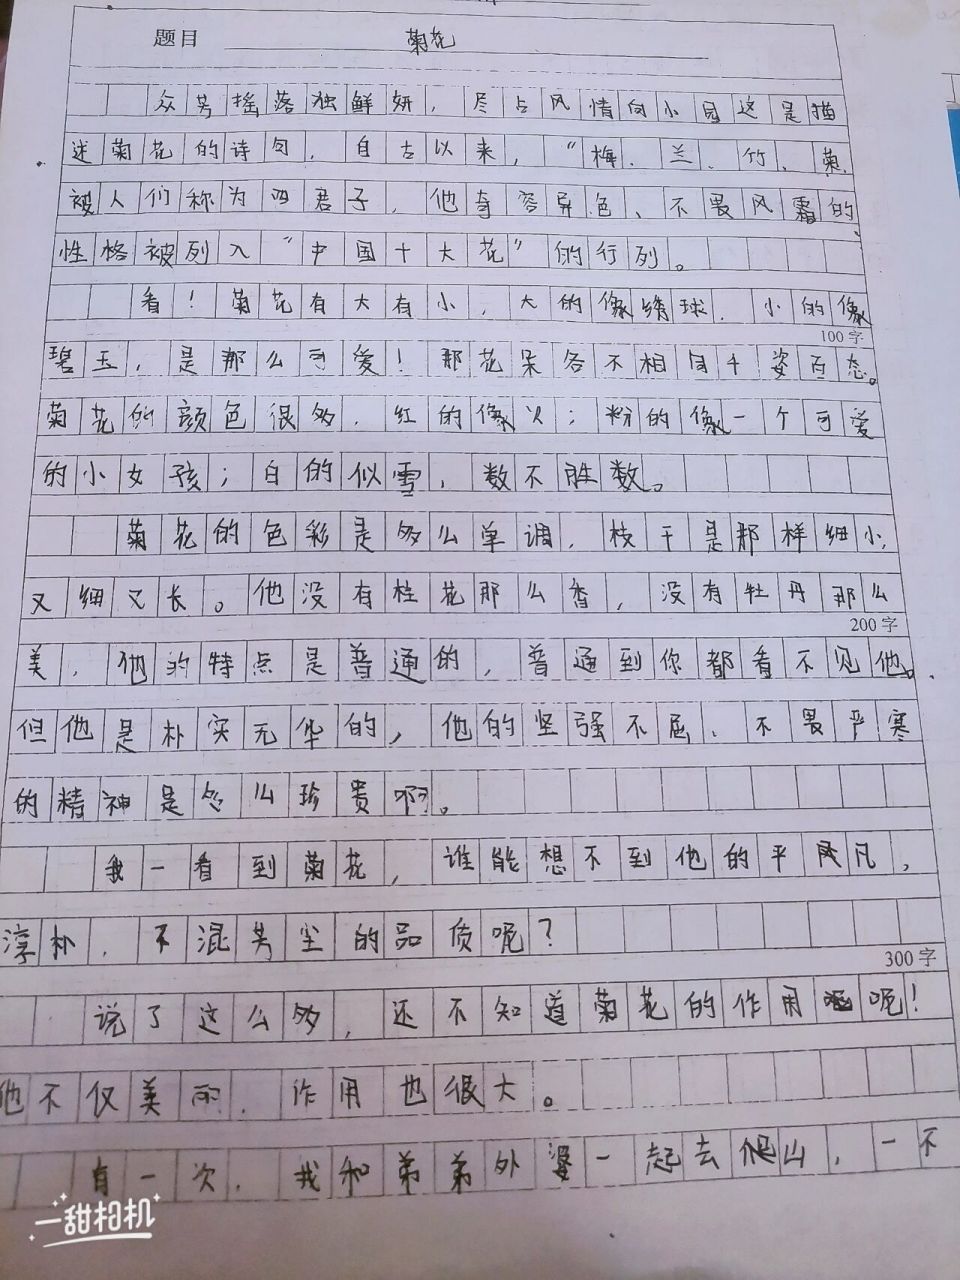 题目 菊花
众芳摇落独鲜妍，尽占风情向小园这是描
述菊花的诗句，自古以来，“梅、兰、竹、菊
被人们称为四君子，他奇容异色、不畏风霜的
性格被列入“中国十大花”的行列。
看！菊花有大有小，大的像绣球，小的像
100字
碧玉，是那么可爱！那花朵各不相同千姿百态。
菊花的颜色很多，红的像火；粉的像一个可爱
的小女孩；白的似雪，数不胜数。
菊花的色彩是多么单调，枝干是那样细小，
又细又长。他没有桂花那么香，没有牡丹那么
200字
美，他的特点是普通的，普通到你都看不见他。
但他是朴实无华的，他的坚强不屈、不畏严寒
的精神是多么珍贵啊。
我一看到菊花，谁能想不到他的平凡，
淳朴，不混芳尘的品质呢？
300字
说了这么多，还不知道菊花的作用呢！
他不仅美丽，作用也很大。
有一次，我和弟弟外婆一起去爬山，一不
一甜相机